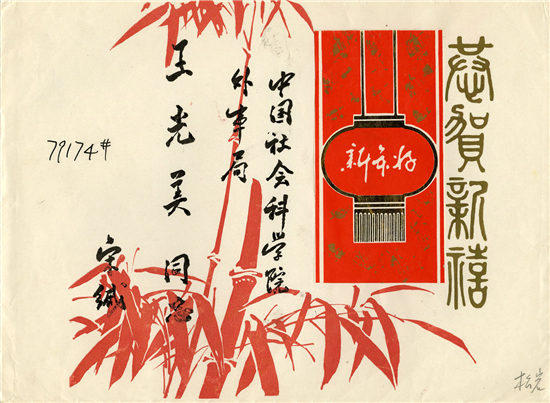 恭贺新禧
新年好
中国社会科学院
外事局
王光美 同志
宋缄
79174#
松岩